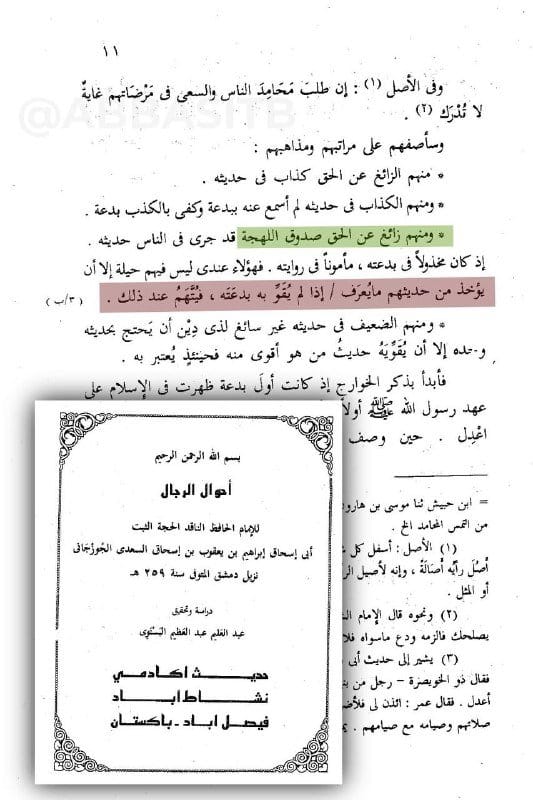 ١١
وفى الأصل (١) : إن طلبَ مَحَامِدَ الناس والسعىَ فى مَرْضَاتهم غايةٌ
لا تُدْرَك (٢) .
@ABBASITB
وسأصفهم على مراتبهم ومذاهبهم :
* منهم الزائغ عن الحق كذاب فى حديثه .
* ومنهم الكذاب فى حديثه لم أسمع عنه ببدعة وكفى بالكذب بدعة .
* ومنهم زائغ عن الحق صدوق اللهجة قد جرى فى الناس حديثه .
إذ كان مخذولاً فى بدعته ، مأموناً فى روايته . فهؤلاء عندى ليس فيهم حيلة إلا أن
يؤخذ من حديثهم مايُعرَف / إذا لم يُقَوِّ به بدعَتَه ، فيُتَّهَمُ عند ذلك .
( ٣/ب )
* ومنهم الضعيف فى حديثه غير سائغ لذى دِيْن أن يَحتج بحديثه
وحده إلا أن يُقَوِّيَهُ حديثُ من هو أقوى منه فحينئذٍ يُعتبر به .
فأبدأ بذكر الخوارج إذ كانت أولَ بدعة ظهرت فى الإسلام على
عهد رسول الله ﷺ أولاً
اعْدِل . حين وصف
= ابن حبيش ثنا موسى بن هارو
من التمس المحامد الخ .
(١) الأصل : أسفل كل
أَصُلَ رأيُه أَصَالَةً ، وإنه لأصيل الر
أو المثل .
(٢) ونحوه قال الإمام
يصلحك فالزمه ودع ماسواه فلا
(٣) يشير إلى حديث أبى
فقال ذو الخويصرة - رجل من بن
أعدل . فقال عمر : ائذن لى فلأض
صلاتهم وصيامه مع صيامهم .
بسم الله الرحمن الرحيم
أحوال الرجال
للإمام الحافظ الناقد الحجة الثبت
أبى إسحاق إبراهيم بن يعقوب بن إسحاق السعدى الجُوزجَانى
نزيل دمشق المتوفى سنة ٢٥٩ هـ
دراسة وتحقيق
عبد العليم عبد العظيم البَسْتَوِى
حديث اكادمي
نشاط اباد
فيصل اباد - باكستان